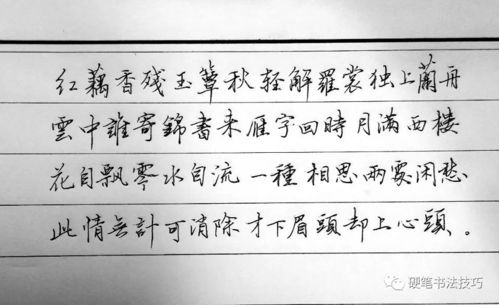 红藕香残玉簟秋轻解羅裳独上蘭舟
雲中誰寄錦書来雁字回時月满西楼
花自飘零水自流一種相思两處闲愁
此情無計可消除才下眉頭却上心頭。
硬笔书法技巧